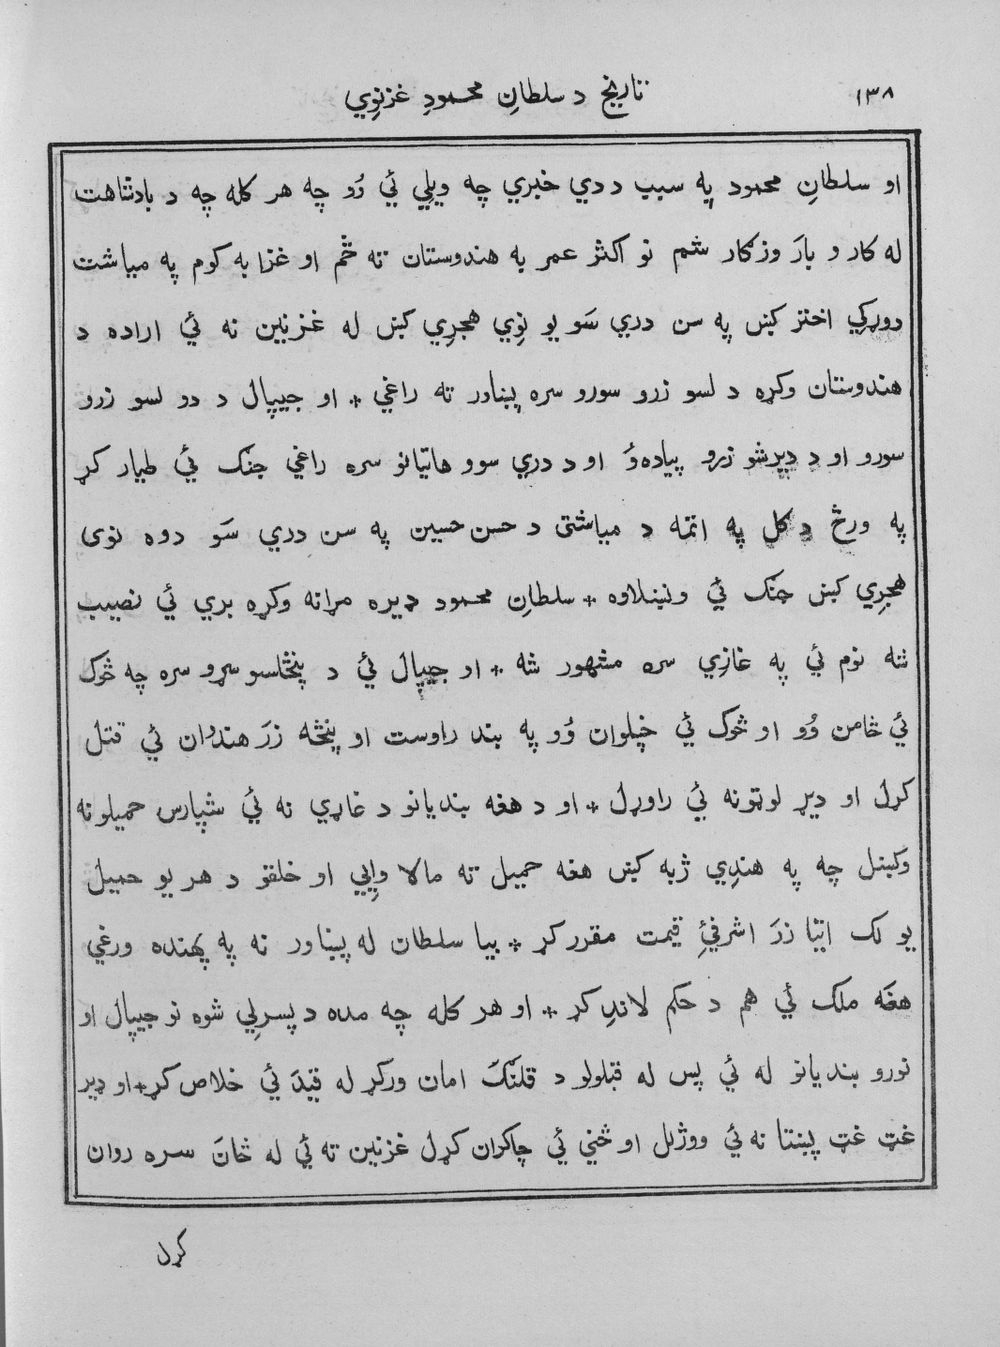 ١٣٨
تاریخ د سلطانِ محمودِ غزنوِي
او سلطانِ محمود په سبب د دي خبري چه ویلي ئي وُو چه هر کله چه د بادشاهت
له کار و بارَ وزکار شم نو اکثر عمر به هندوستان ته څم او غزا به کوم په میاشت
دوړکي اختر کښ په سن دري سَو یو نوِي هجرِي کښ له غزنین نه ئي اراده د
هندوستان وکړه د لسو زرو سورو سره پښاور ته راغي * او جیپال د دو لسو زرو
سورو او د دیرشو زرو پیاده‌ؤ او د دري سوو هاتیانو سره راغي جنګ ئي طیار کړ
په ورځ د کل په اتمه د میاشتی د حسن حسین په سن دري سَو دوه نوی
هجرِي کښ جنګ ئي ونښلاوه * سلطانِ محمود ډیره مړانه وکړه بري ئي نصیب
شه نوم ئي په غازِي سره مشهور شه * او جیپال ئي د پنځلسو سړو سره چه څوک
ئي ځامن وُو او څوک ئي خپلوان وُو په بند راوست او پنځه زرَ هندوان ئي قتل
کړل او ډیر لوټونه ئي راوړل * او د هغه بندیانو د غاړي نه ئي شپارس حمیلونه
وکښل چه په هندِي ژبه کښ هغه حمیل ته مالا وایِي او خلقو د هر یو حمیل
یو لک اتیا زرَ اشرفئِ قیمت مقرر کړ * بیا سلطان له پښاور نه په پهنده ورغي
هغه ملک ئي هم د حکم لاندِ کړ * او هر کله چه مده د پسرلِي شوه نو جیپال او
نورو بندیانو له ئي پس له قبلولو د قلنګ امان ورکړ له قیدَ ئي خلاص کړ * او ډیر
غټ غټ پښتا نه ئي ووژل او ځني ئي چاکران کړل غزنین ته ئي له ځانَ سره روان
کړل